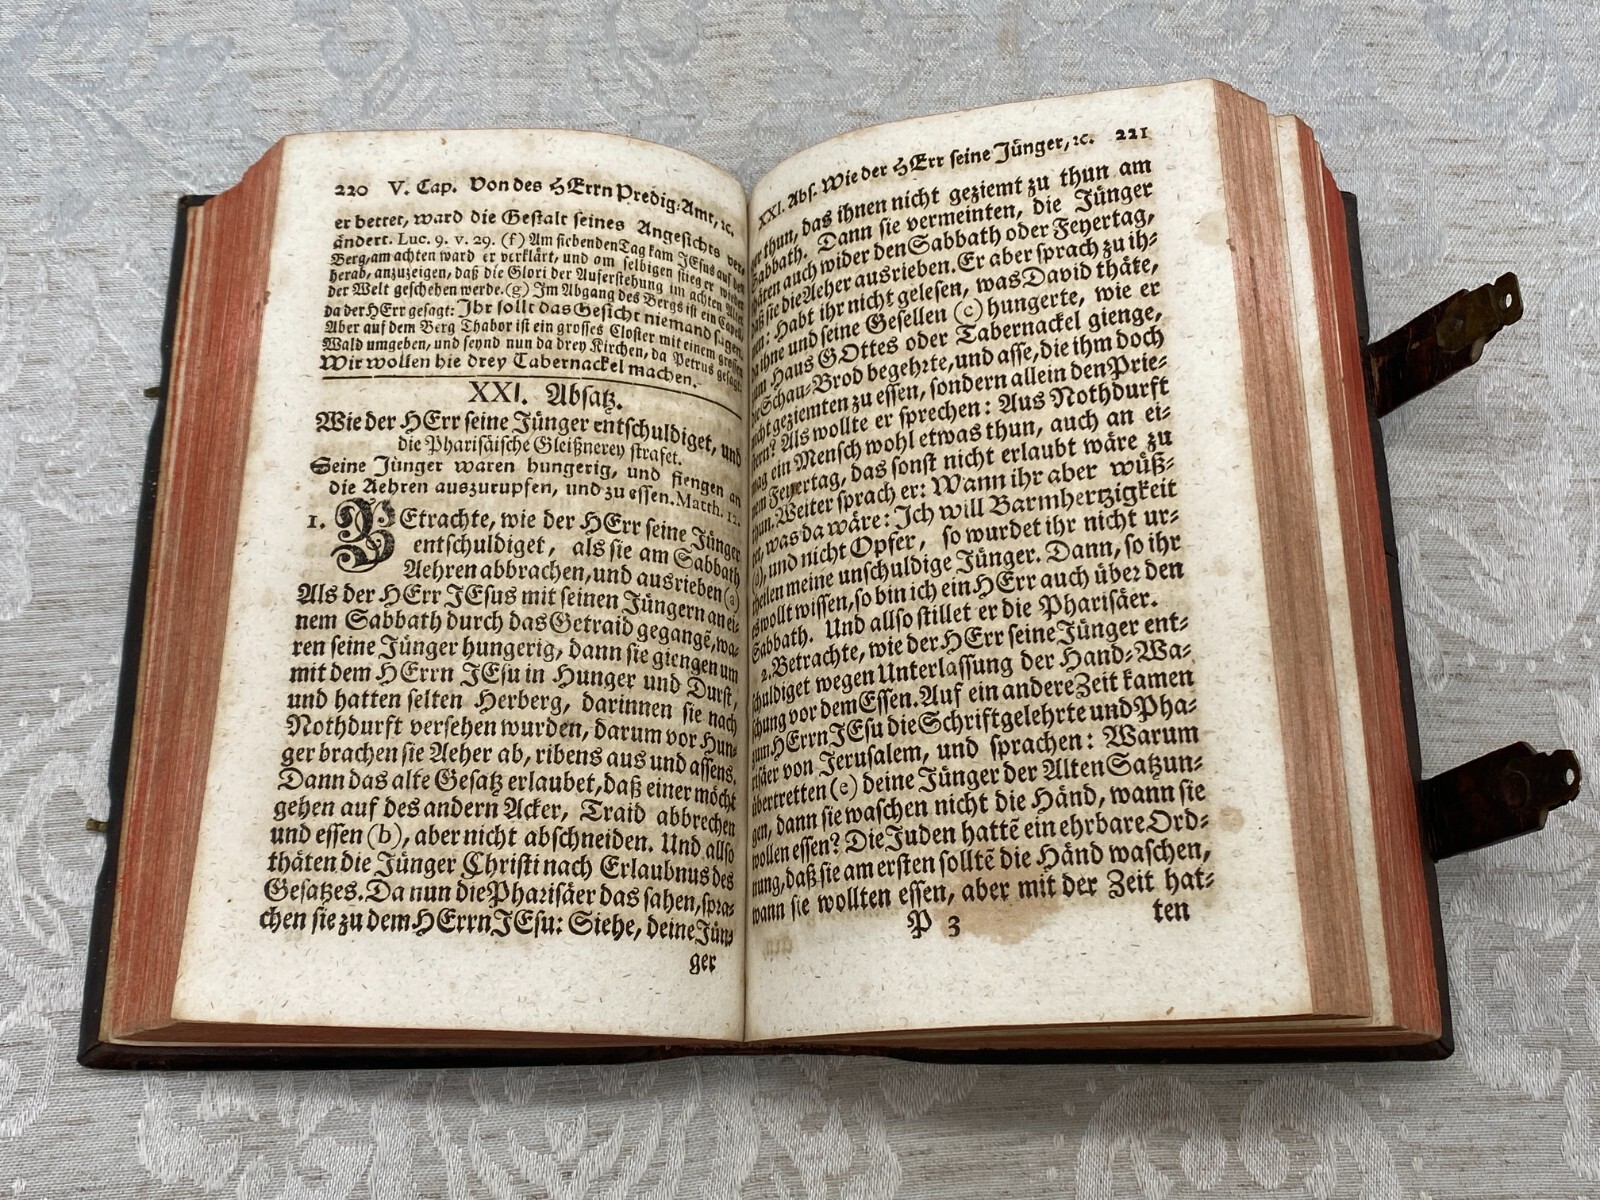 220 V. Cap. Von des HErrn Predig-Amt, ꝛc.
er bettet, ward die Gestalt seines Angesichts ver-
ändert. Luc. 9. v. 29. (f) Am siebenden Tag kam JEsus auf den
Berg, am achten ward er verklärt, und am selbigen stieg er wieder
herab, anzuzeigen, daß die Glori der Auferstehung im achten Alter
der Welt geschehen werde. (g) Im Abgang des Bergs ist ein Capell,
da der HErr gesagt: Ihr sollt das Gesicht niemand sagen.
Aber auf dem Berg Thabor ist ein grosses Closter mit einem grossen
Wald umgeben, und seynd nun da drey Kirchen, da Petrus gesagt:
Wir wollen hie drey Tabernackel machen.
XXI. Absatz.
Wie der HErr seine Jünger entschuldiget, und
die Pharisäische Gleißnerey strafet.
Seine Jünger waren hungerig, und fiengen an
die Aehren auszurupfen, und zu essen. Matth. 12.
1. BEtrachte, wie der HErr seine Jünger
entschuldiget, als sie am Sabbath
Aehren abbrachen, und ausrieben (a)
Als der HErr JEsus mit seinen Jüngern an ei-
nem Sabbath durch das Getraid gegangē, wa-
ren seine Jünger hungerig, dann sie giengen um
mit dem HErrn JEsu in Hunger und Durst,
und hatten selten Herberg, darinnen sie nach
Nothdurft versehen wurden, darum vor Hun-
ger brachen sie Aeher ab, ribens aus und assens.
Dann das alte Gesatz erlaubet, daß einer möcht
gehen auf des andern Acker, Traid abbrechen
und essen (b), aber nicht abschneiden. Und also
thäten die Jünger Christi nach Erlaubnus des
Gesatzes. Da nun die Pharisäer das sahen, spra-
chen sie zu dem HErrn JEsu: Siehe, deine Jün-
ger
XXI. Abs. Wie der HErr seine Jünger, ꝛc. 221
ger thun, das ihnen nicht geziemt zu thun am
Sabbath. Dann sie vermeinten, die Jünger
thäten auch wider den Sabbath oder Feyertag,
daß sie die Aeher ausrieben. Er aber sprach zu ih-
nen: Habt ihr nicht gelesen, was David thäte,
da ihne und seine Gesellen (c) hungerte, wie er
zum Haus GOttes oder Tabernackel gienge,
die Schau-Brod begehrte, und asse, die ihm doch
nicht geziemten zu essen, sondern allein den Prie-
stern? Als wollte er sprechen: Aus Nothdurft
mag ein Mensch wohl etwas thun, auch an ei-
nem Feyertag, das sonst nicht erlaubt wäre zu
thun. Weiter sprach er: Wann ihr aber wüß-
tet, was da wäre: Ich will Barmhertzigkeit
(d), und nicht Opfer, so wurdet ihr nicht ur-
theilen meine unschuldige Jünger. Dann, so ihr
es wollt wissen, so bin ich ein HErr auch über den
Sabbath. Und also stillet er die Pharisäer.
2. Betrachte, wie der HErr seine Jünger ent-
schuldiget wegen Unterlassung der Hand-Wa-
schung vor dem Essen. Auf ein andere Zeit kamen
zum HErrn JEsu die Schriftgelehrte und Pha-
risäer von Jerusalem, und sprachen: Warum
übertretten (e) deine Jünger der Alten Satzun-
gen, dann sie waschen nicht die Händ, wann sie
wollen essen? Die Juden hattē ein ehrbare Ord-
nung, daß sie am ersten solltē die Händ waschen,
wann sie wollten essen, aber mit der Zeit hat-
P 3 ten